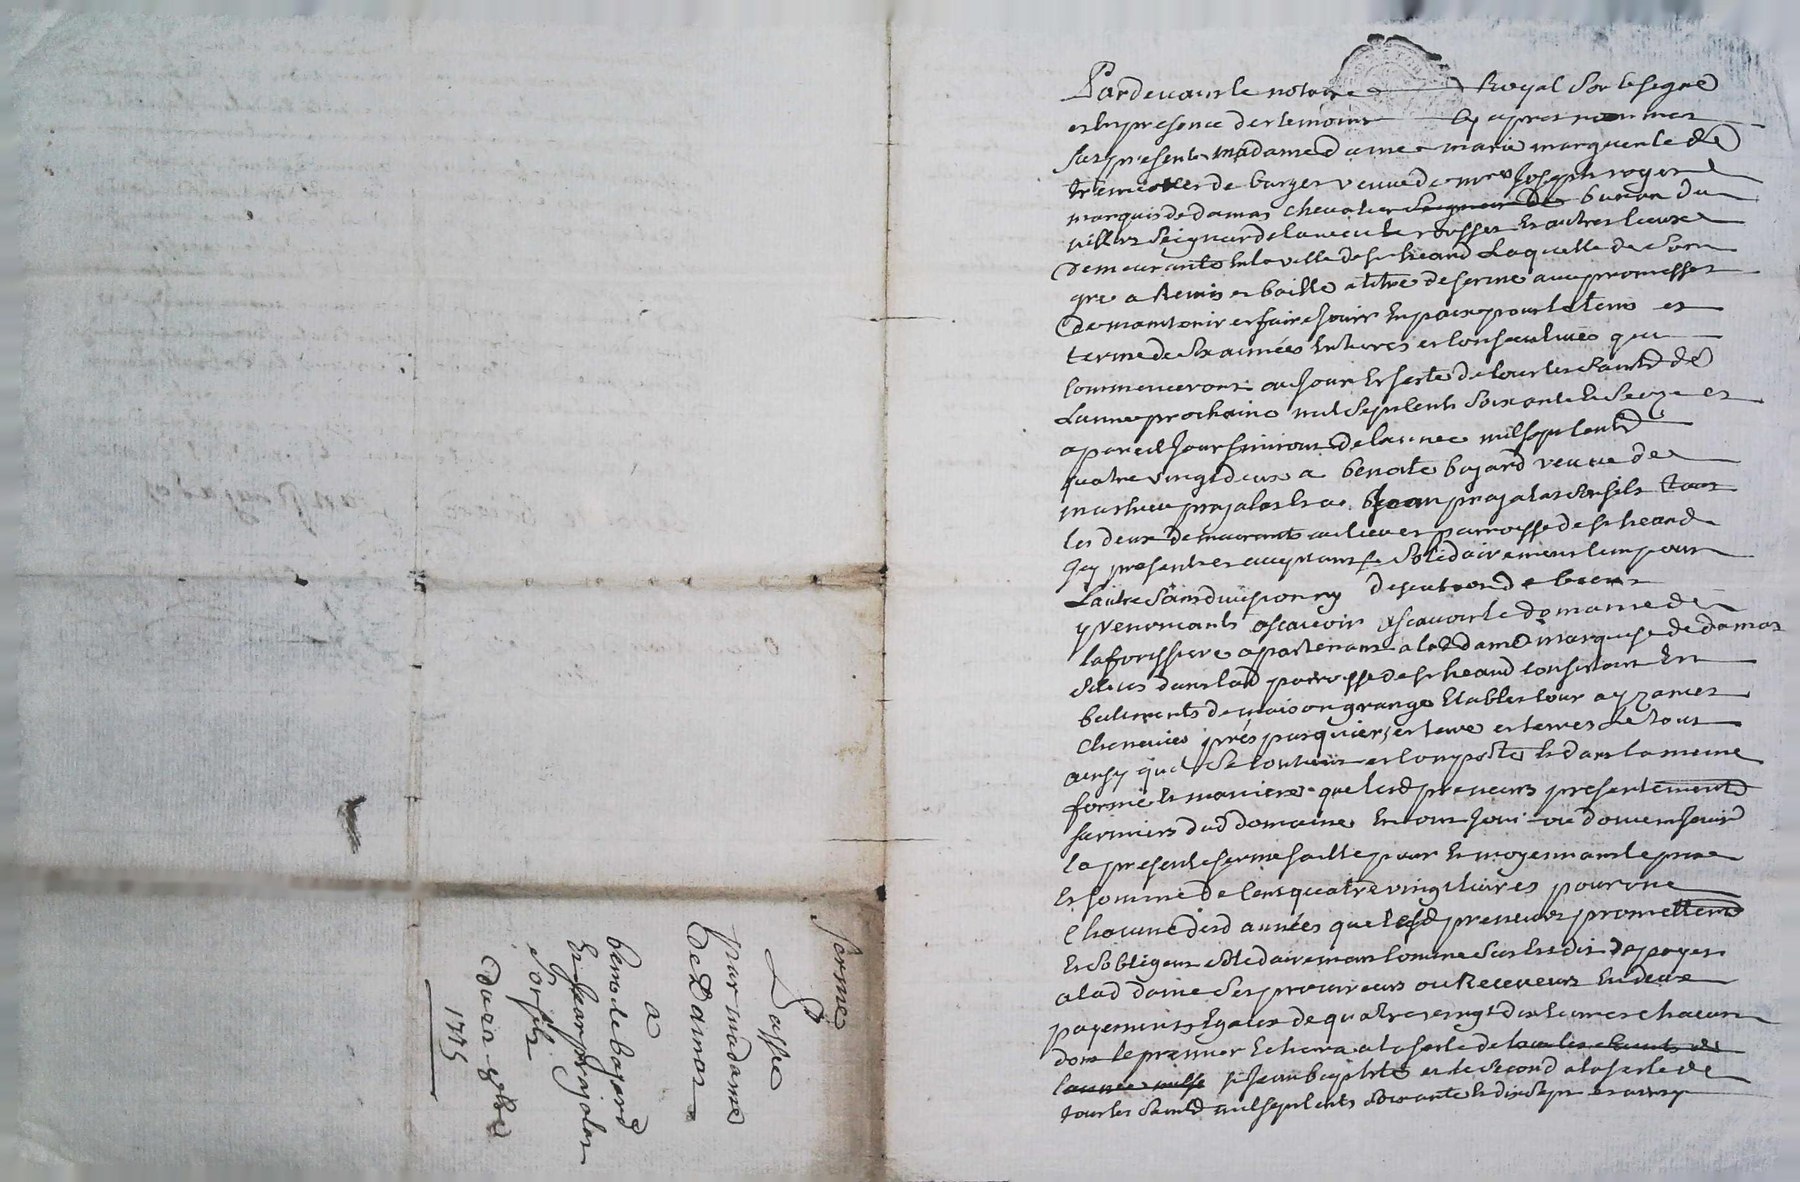 Pardevant le notaire Royal Soubsigné
et En presence des temoins Cy apres nommes
fut presente madame dame marie marguerite de
de burges veuve de mre Joseph roger
marquis de damas chevallier Seigneur de baron du
villars Seigneur de la rousses Et autres lieux
demeurante En la ville de st heand Laquelle de Son
gre a Remis et baillé a titre de ferme avec promesses
de maintenir et faire Jouir En paix pour le tems et
terme de Six années Entieres et Consecutives qui
Commenceront au Jour Et feste de tous les Saints de
Lannee prochaine mil Sept Cents Soixante et Seize et
a pareil Jour finiront de lannee mil sept Cents
quatre vingt deux a benoite bajard veuve de
mathieu prajalas Et a Jean prajalas Son fils tous
les deux demeurants au lieu et parroisse de st heand
Icy presents et acceptants Solidairement lun pour
Lautre Sans division ny discution de biens
y Renoncants ascavoir ascavoir le domaine de
la appartenant a lad dame marquise de damas
Situes dans lad parroisse de st heand Consistant En
batiments de maison grange Etables Cour ayzances
Cheneviers prés pasquiers et terres Le tout
ainsy quil Se Contient et Comporte Et dans la meme
forme Et maniere que lesd preneurs presentement
fermiers dud domaine En ont Joui ou dû Jouir
la presente ferme faitte pour Et moyennant le prix
Et somme de Cent quatre vingt livres pour une
Chacune desd années que lesd preneurs promettent
Et Sobligent Solidairement comme Sus Est dit de payer
a lad dame Ses procureurs ou Receveurs En deux
payements Egaux de quatre vingt dix livres chacun
dont le premier Echerra a la feste de tous les Saints de
lannee mil St Jean baptiste et le Second a la feste de
tous les Saints mil sept Cents Soixante et dix sept et ainsy
ferme
Passé
par madame
De Damas
a
benoite bajard
Et Jean prajalas
son fils
Du 21 9bre
1775